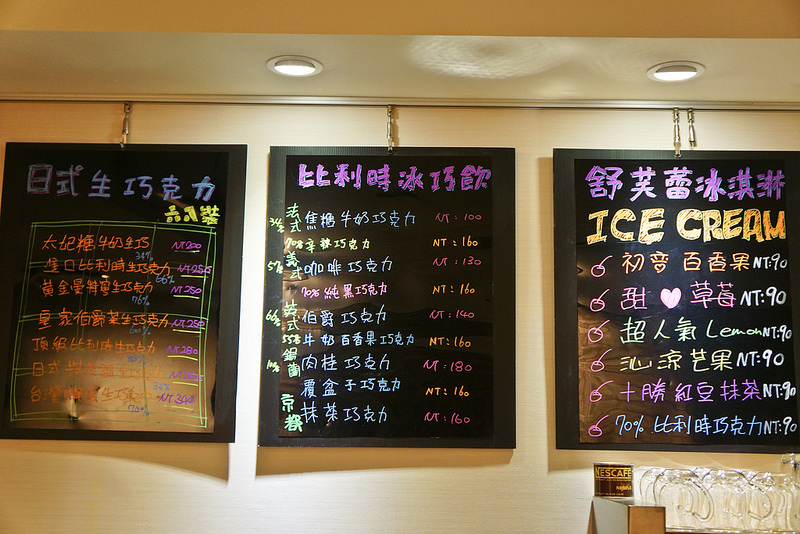 日式生巧克力
六入裝
太妃糖牛奶生巧 NT200
34%
進口比利時生巧克力 NT250
66%
黃金曼特寧生巧克力 NT250
76%
皇家伯爵茶生巧克力 NT250
頂級比利時生巧克力 NT280
日式
台灣 生巧克力 NT300
70%
比利時冰巧飲
法式 焦糖牛奶巧克力 NT:100
70%辛辣巧克力 NT:160
義式 咖啡巧克力 NT:130
70%純黑巧克力 NT:160
英式 伯爵巧克力 NT:140
55% 牛奶百香果巧克力 NT:160
錫蘭 肉桂巧克力 NT:180
覆盆子巧克力 NT:160
京都 抹茶巧克力 NT:160
舒芙蕾冰淇淋
ICE CREAM
初音百香果NT:90
甜♥草莓NT:90
超人氣LemonNT:90
沁涼芒果NT:90
十勝紅豆抹茶NT:90
70%比利時巧克力NT:90
NESCAFÉ